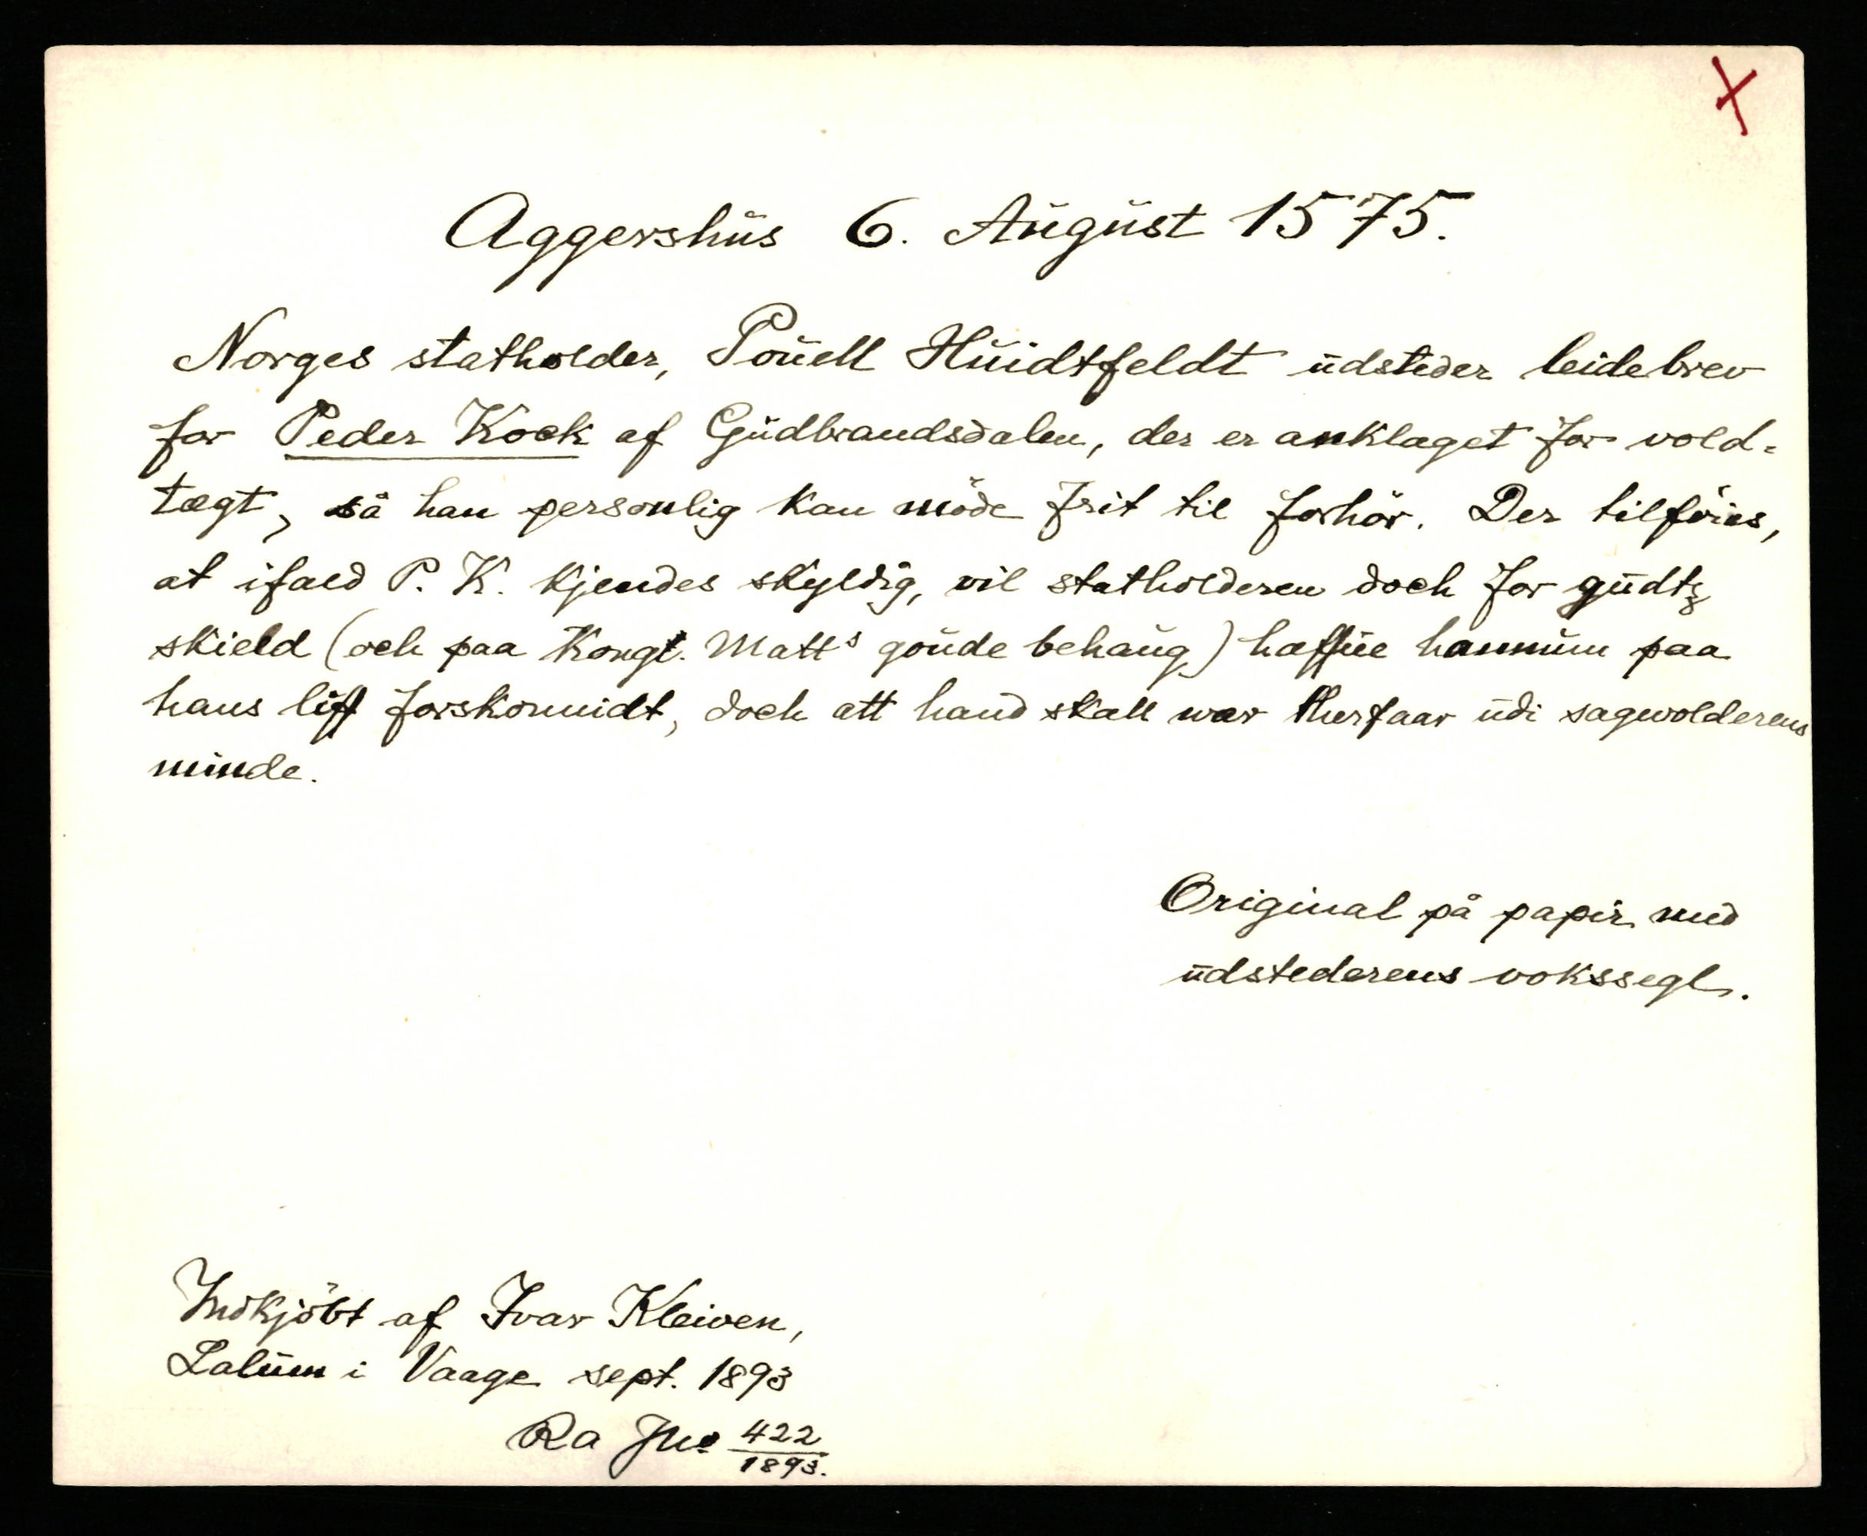 X
Aggershus 6. August 1575.
Norges statholder, Pouell Huidtfeldt udsteder leidebrev
for Peder Kock af Gudbrandsdalen, der er anklaget for vold-
tægt, så han personlig kan møde frit til forhör. Der tilföies,
at ifald P. K. kjendes skyldig, vil statholderen doch for gudtz
skield (och paa Kongl. Matts goude behaug) haffue hannum paa
hans liff forskonnidt, doch att hand skall wær therfaar udi sagwolderens
minde.
Original på papir med
udstederens vokssegl.
Indkjöbt af Ivar Kleiven,
Lalum i Vaage sept. 1893
Ra Jno 422/1893.